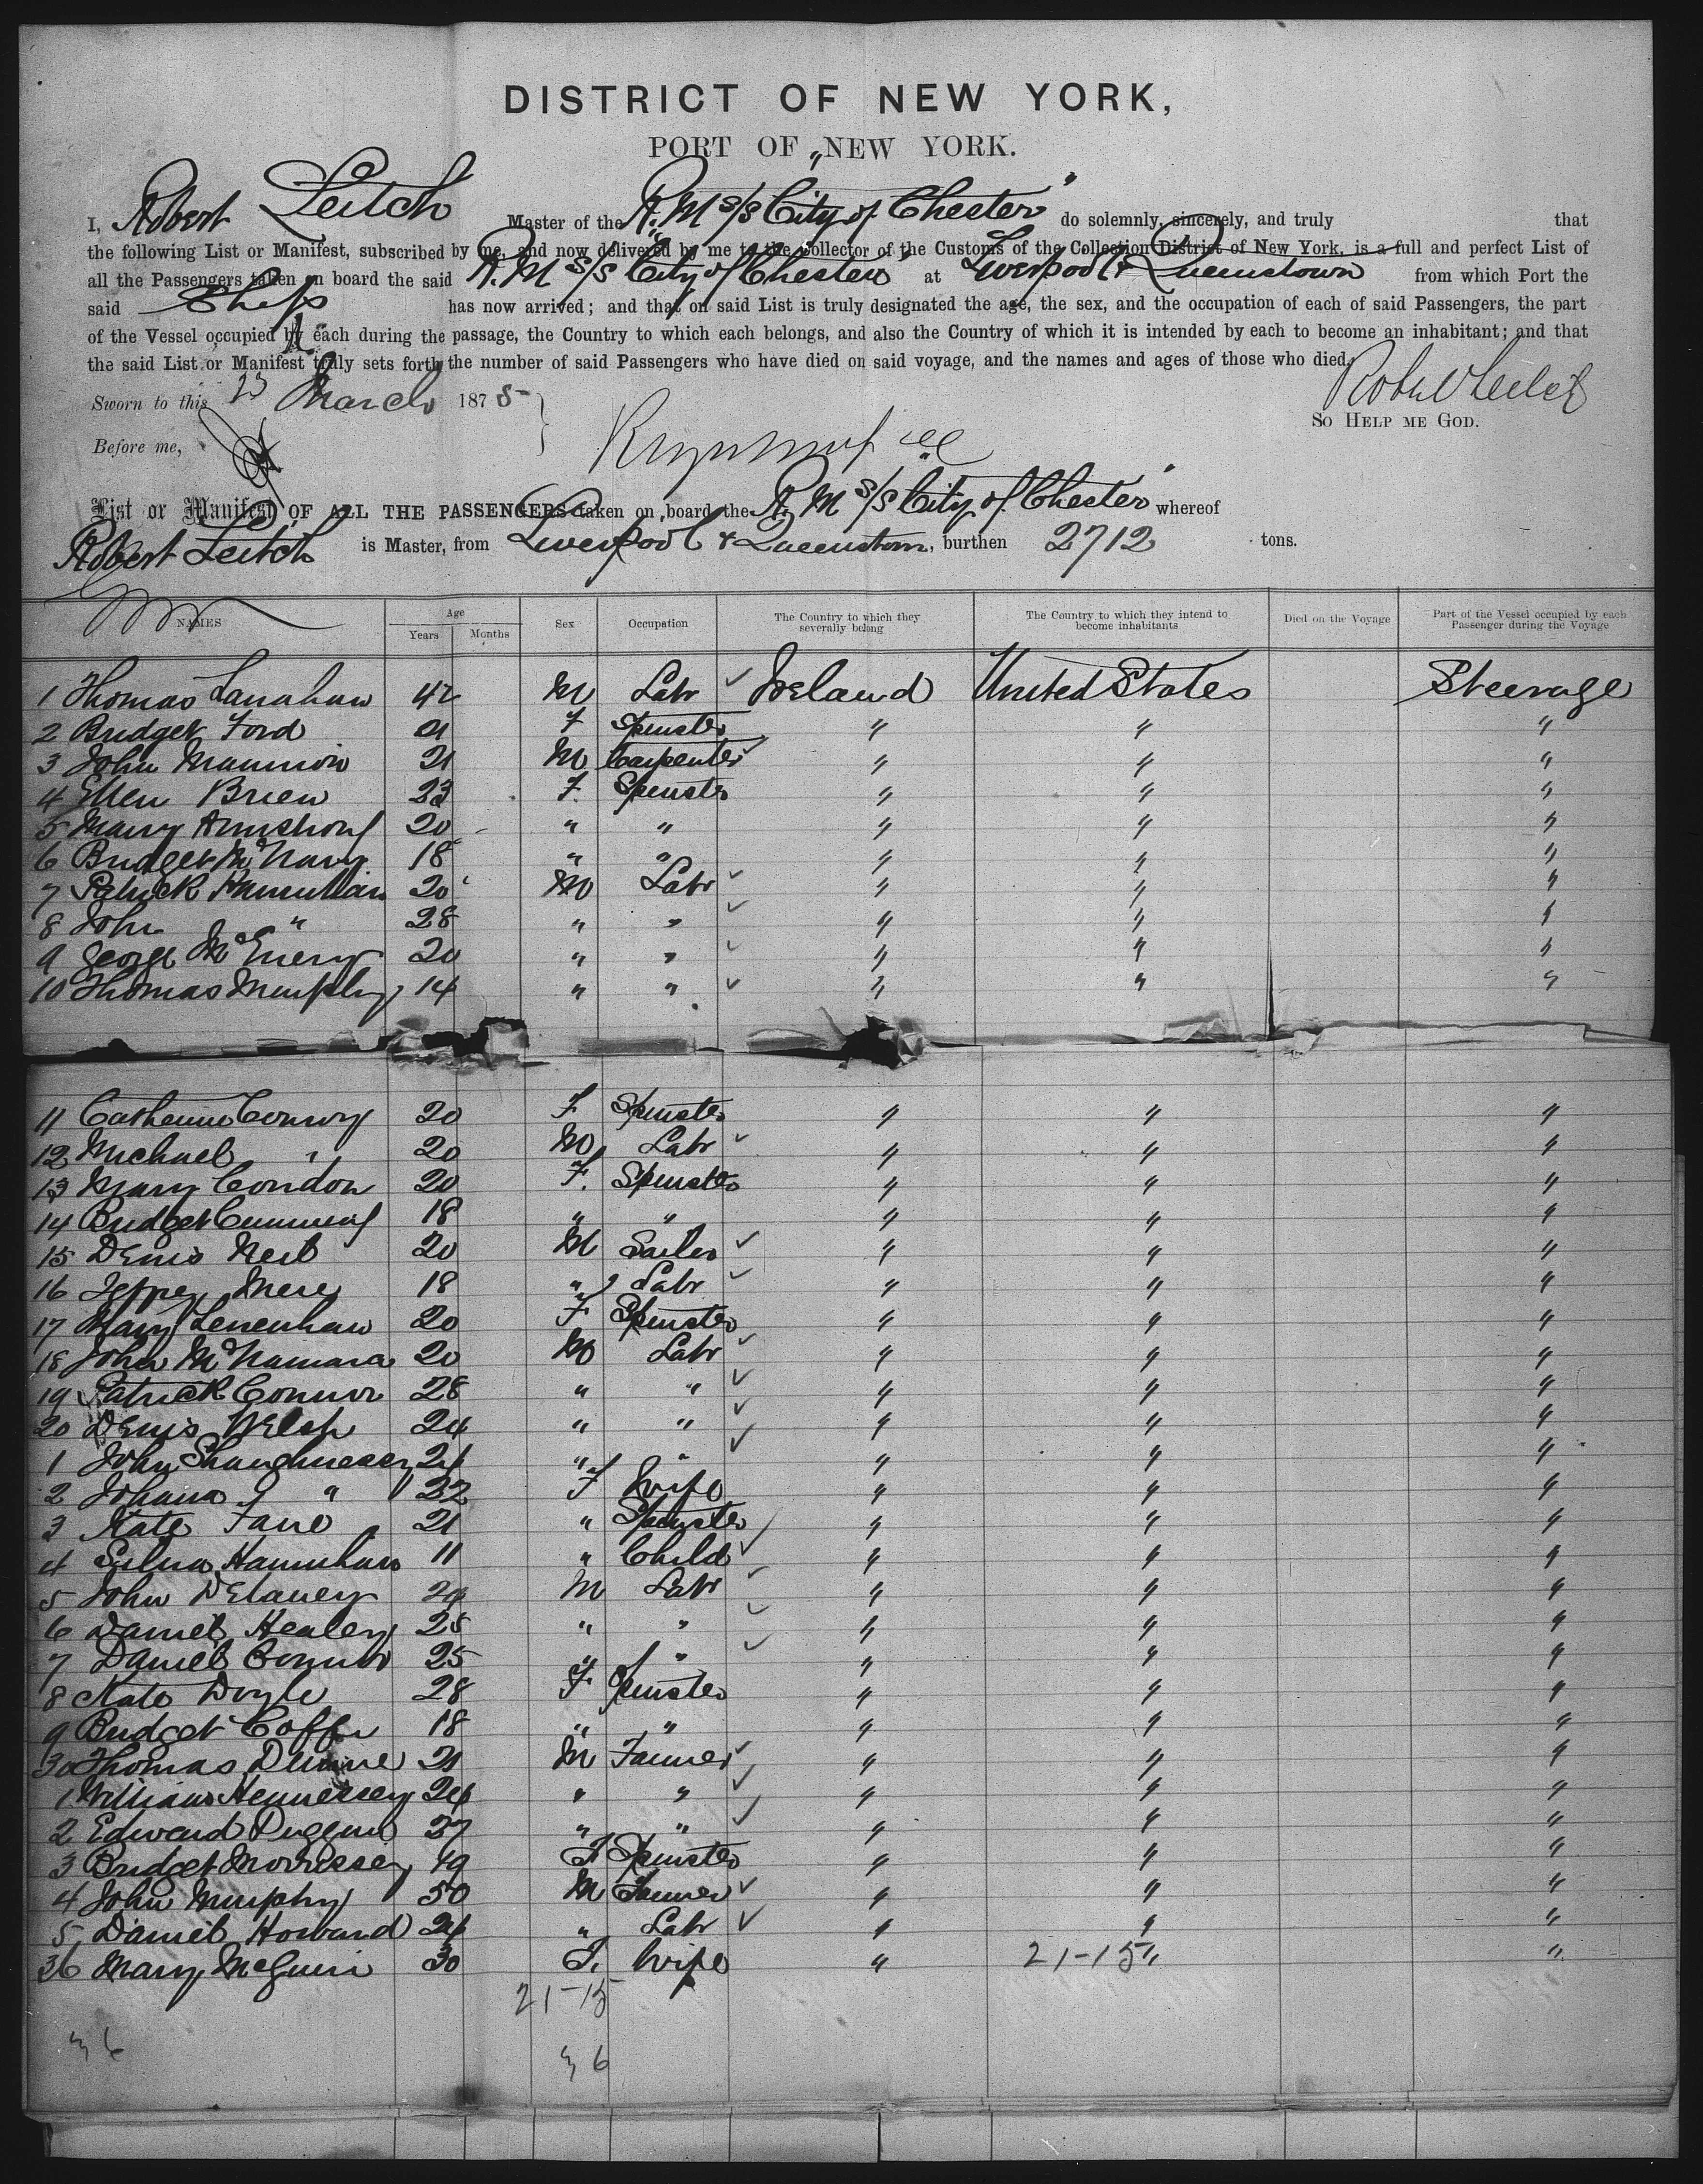 DISTRICT OF NEW YORK,
PORT OF NEW YORK.
I, Robert Leitch Master of the R.M S/S "City of Chester" do solemnly, sincerely, and truly that
the following List or Manifest, subscribed by me, and now delivered by me to the Collector of the Customs of the Collection District of New York, is a full and perfect List of
all the Passengers taken on board the said R.M S/S "City of Chester" at Liverpool & Queenstown from which Port the
said Ship has now arrived; and that on said List is truly designated the age, the sex, and the occupation of each of said Passengers, the part
of the Vessel occupied by each during the passage, the Country to which each belongs, and also the Country of which it is intended by each to become an inhabitant; and that
the said List or Manifest truly sets forth the number of said Passengers who have died on said voyage, and the names and ages of those who died.
Sworn to this 23 March 1875
So HELP ME GOD.
Before me,
List or Manifest OF ALL THE PASSENGERS taken on board the R.M S/S "City of Chester" whereof
Robert Leitch is Master, from Liverpool & Queenstown, burthen 2712 tons.
NAMES Age Years Months Sex Occupation The Country to which they severally belong The Country to which they intend to become inhabitants Died on the Voyage Part of the Vessel occupied by each Passenger during the Voyage
1 Thomas Lanahan 42 M Labr Ireland United States Steerage
2 Bridget Ford F Spinster " " "
3 John Mannion 21 M Carpenter " " "
4 Ellen Brien 23 F Spinster " " "
5 Mary Armstrong 20 " " " " "
6 Bridget McNary 18 " " " " "
7 Patrick 20 M Labr " " "
8 John " 28 " " " " "
9 George McEnery 20 " " " " "
10 Thomas Murphy 14 " " " " "
11 Catherine Conroy 20 F Spinster " " "
12 Michael " 20 M Labr " " "
13 Mary Condon 20 F. Spinster " " "
14 Bridget Cummings 18 " " " " "
15 Denis Neil 20 M Sailor " " "
16 18 " Labr " " "
17 Mary Lenenhan 20 F Spinster " " "
18 John McNamara 20 M Labr " " "
19 Patrick Connor 28 " " " " "
20 Denis Welsh 24 " " " " "
1 John Shaughnessy 24 " " " " "
2 Johana " 22 F Wife " " "
3 Kate 21 " Spinster " " "
4 Hannahan 11 " Child " " "
5 John Delaney M Labr " " "
6 Daniel Healey 25 " " " " "
7 Daniel Connor 25 " " " " "
8 Kate Doyle 28 F Spinster " " "
9 Bridget Coffee 18 " " " " "
30 Thomas Dunne 21 M Farmer " " "
1 William Hennessey 24 " " " " "
2 Edward Duggan 27 " " " " "
3 Bridget Morrissey 19 F Spinster " " "
4 John Murphy 50 M Farmer " " "
5 Daniel Howard 24 " Labr " " "
36 Mary McGuire 30 F. Wife " 21-15 " "
21-15
36 36